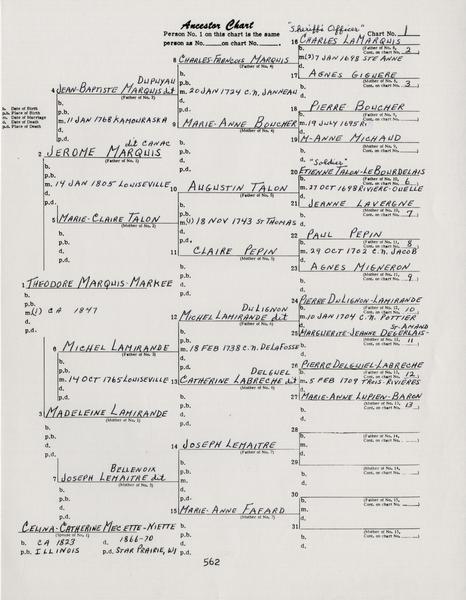 Ancestor Chart
Person No. 1 on this chart is the same
person as No. ____ on chart No. ____.
"Sheriff's Officer"
Chart No. 1
b. Date of Birth
p.b. Place of Birth
m. Date of Marriage
d. Date of Death
p.d. Place of Death
1 THEODORE MARQUIS-MARKEE
b.
p.b.
m.(1) CA 1847
d.
p.d.
2 JEROME MARQUIS dit CANAC
(Father of No. 1)
b.
p.b.
m. 14 JAN 1805 LOUISEVILLE
d.
p.d.
3 MADELEINE LAMIRANDE
(Mother of No. 1)
b.
p.b.
d.
p.d.
4 JEAN-BAPTISTE MARQUIS dit DUPUYAU
(Father of No. 2)
b.
p.b.
m. 11 JAN 1768 KAMOURASKA
d.
p.d.
5 MARIE-CLAIRE TALON
(Mother of No. 2)
b.
p.b.
d.
p.d.
6 MICHEL LAMIRANDE
(Father of No. 3)
b.
p.b.
m. 14 OCT 1765 LOUISEVILLE
d.
p.d.
7 JOSEPH LEMAITRE dit BELLENOIX
(Mother of No. 3)
b.
p.b.
d.
p.d.
8 CHARLES-FRANÇOIS MARQUIS
(Father of No. 4)
b.
p.b.
m. 20 JAN 1724 C.N. JANNEAU
d.
p.d.
9 MARIE-ANNE BOUCHER
(Mother of No. 4)
b.
p.b.
d.
p.d.
10 AUGUSTIN TALON
(Father of No. 5)
b.
p.b.
m.(1) 18 NOV 1743 ST THOMAS
d.
p.d.
11 CLAIRE PEPIN
(Mother of No. 5)
b.
p.b.
d.
p.d.
12 MICHEL LAMIRANDE dit DULIGNON
(Father of No. 6)
b.
p.b.
m. 18 FEB 1738 C.N. DELAFOSSE
d.
p.d.
13 CATHERINE LABRECHE dit DELGUEL
(Mother of No. 6)
b.
p.b.
d.
p.d.
14 JOSEPH LEMAITRE
(Father of No. 7)
b.
p.b.
m.
d.
p.d.
15 MARIE-ANNE FAFARD
(Mother of No. 7)
b.
p.b.
d.
p.d.
16 CHARLES LAMARQUIS
(Father of No. 8, Cont. on chart No. 2)
m.(2) 7 JAN 1698 STE ANNE
17 AGNES GIGUERE
(Mother of No. 8, Cont. on chart No. 3)
18 PIERRE BOUCHER
(Father of No. 9, Cont. on chart No. ____)
m. 19 JULY 1695 R.
19 M-ANNE MICHAUD
(Mother of No. 9, Cont. on chart No. ____)
"Soldier"
20 ETIENNE TALON-LEBOURDELAIS
(Father of No. 10, Cont. on chart No. 6)
m. 27 OCT 1698 RIVIERE-OUELLE
21 JEANNE LAVERGNE
(Mother of No. 10, Cont. on chart No. 7)
22 PAUL PEPIN
(Father of No. 11, Cont. on chart No. 8)
m. 29 OCT 1702 C.N. JACOB
23 AGNES MIGNERON
(Mother of No. 11, Cont. on chart No. )
24 PIERRE DULIGNON-LAMIRANDE
(Father of No. 12, Cont. on chart No. 10)
m. 10 JAN 1704 C.N. POTTIER
25 MARGUERITE-JEANNE DEGERLAIS-ST-AMAND
(Mother of No. 12, Cont. on chart No. 11)
26 PIERRE DELGUIEL-LABRECHE
(Father of No. 13, Cont. on chart No. 12)
m. 5 FEB 1709 TROIS-RIVIERES
27 MARIE-ANNE LUPIEN-BARON
(Mother of No. 13, Cont. on chart No. 13)
28
(Father of No. 14, Cont. on chart No. ____)
29
(Mother of No. 14, Cont. on chart No. ____)
30
(Father of No. 15, Cont. on chart No. ____)
31
(Mother of No. 15, Cont. on chart No. ____)
CELINA-CATHERINE MECETTE-NIETTE
(Spouse of No. 1)
b. CA 1823 d. 1866-70
p.b. ILLINOIS p.d. STAR PRAIRIE, WI
562